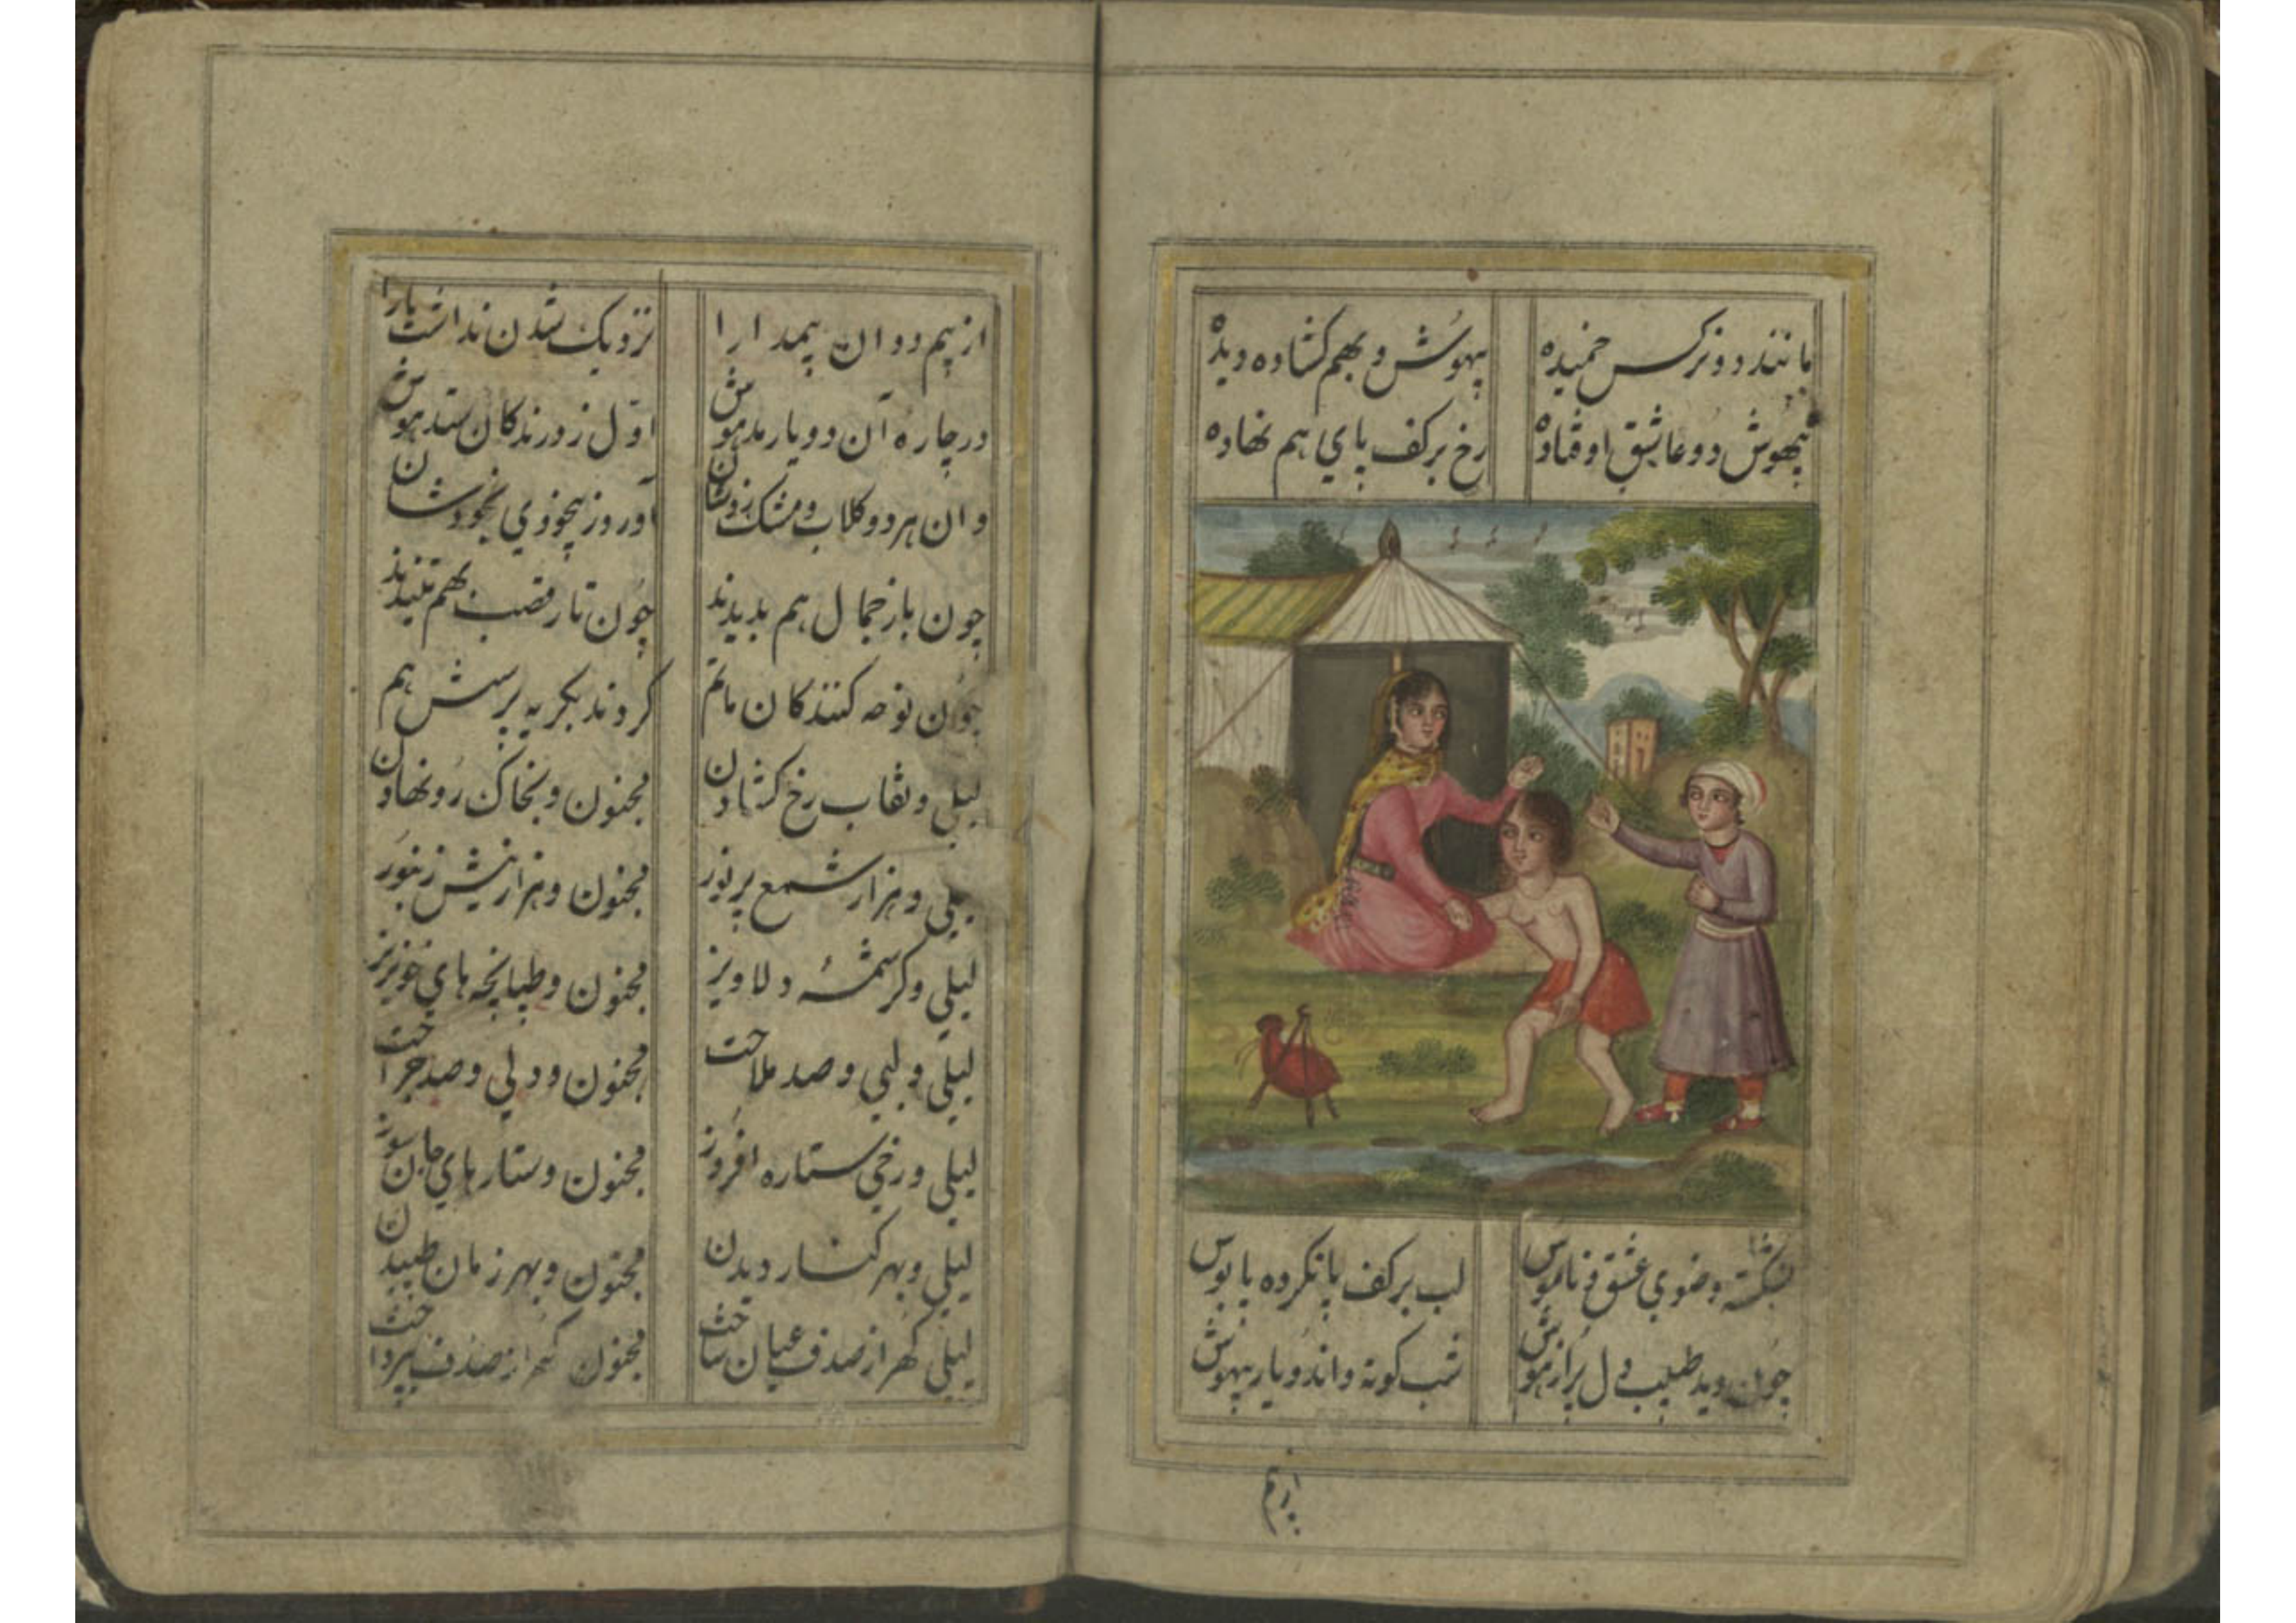 مانند دو نرکس خمیده بیهوش و بهم کشاده دیده
بیهوش دو عاشق اوفتاده رخ بر کف پای هم نهاده
نشکسته وضوی عشق و ناموس لب بر کف پا نکرده پابوس
چون دید طبیب دل پر از هوش شب کوته واندو یار بیهوش
از بیم
از بیم دوان بیمدارا نزدیک شدن نداشت یارا
در چاره آن دو یار مدهوش اول ز درندکان ستد هوش
وان هر دو کلاب و مشک زد شان آورد ز بیخودی بخودشان
چون باز جمال هم بدیدند چون تار قصب بهم تنیدند
چون نوحه کنندکان ماتم کردند بکریه پرسش هم
لیلی و نقاب رخ کشادن مجنون و بخاک رو نهادن
لیلی و هزار شمع پر نور مجنون و هزار نیش زنبور
لیلی و کرشمهٔ دلاویز مجنون و طپانچه های خونریز
لیلی و لبی و صد ملاحت مجنون و دلی و صد جراحت
لیلی و رخی ستاره افروز مجنون و ستارهای جان سوز
لیلی و بهر کنار دیدن مجنون و بهر زمان طپیدن
لیلی کهر از صدف عیان ساخت مجنون کهر از صدف بپرداخت